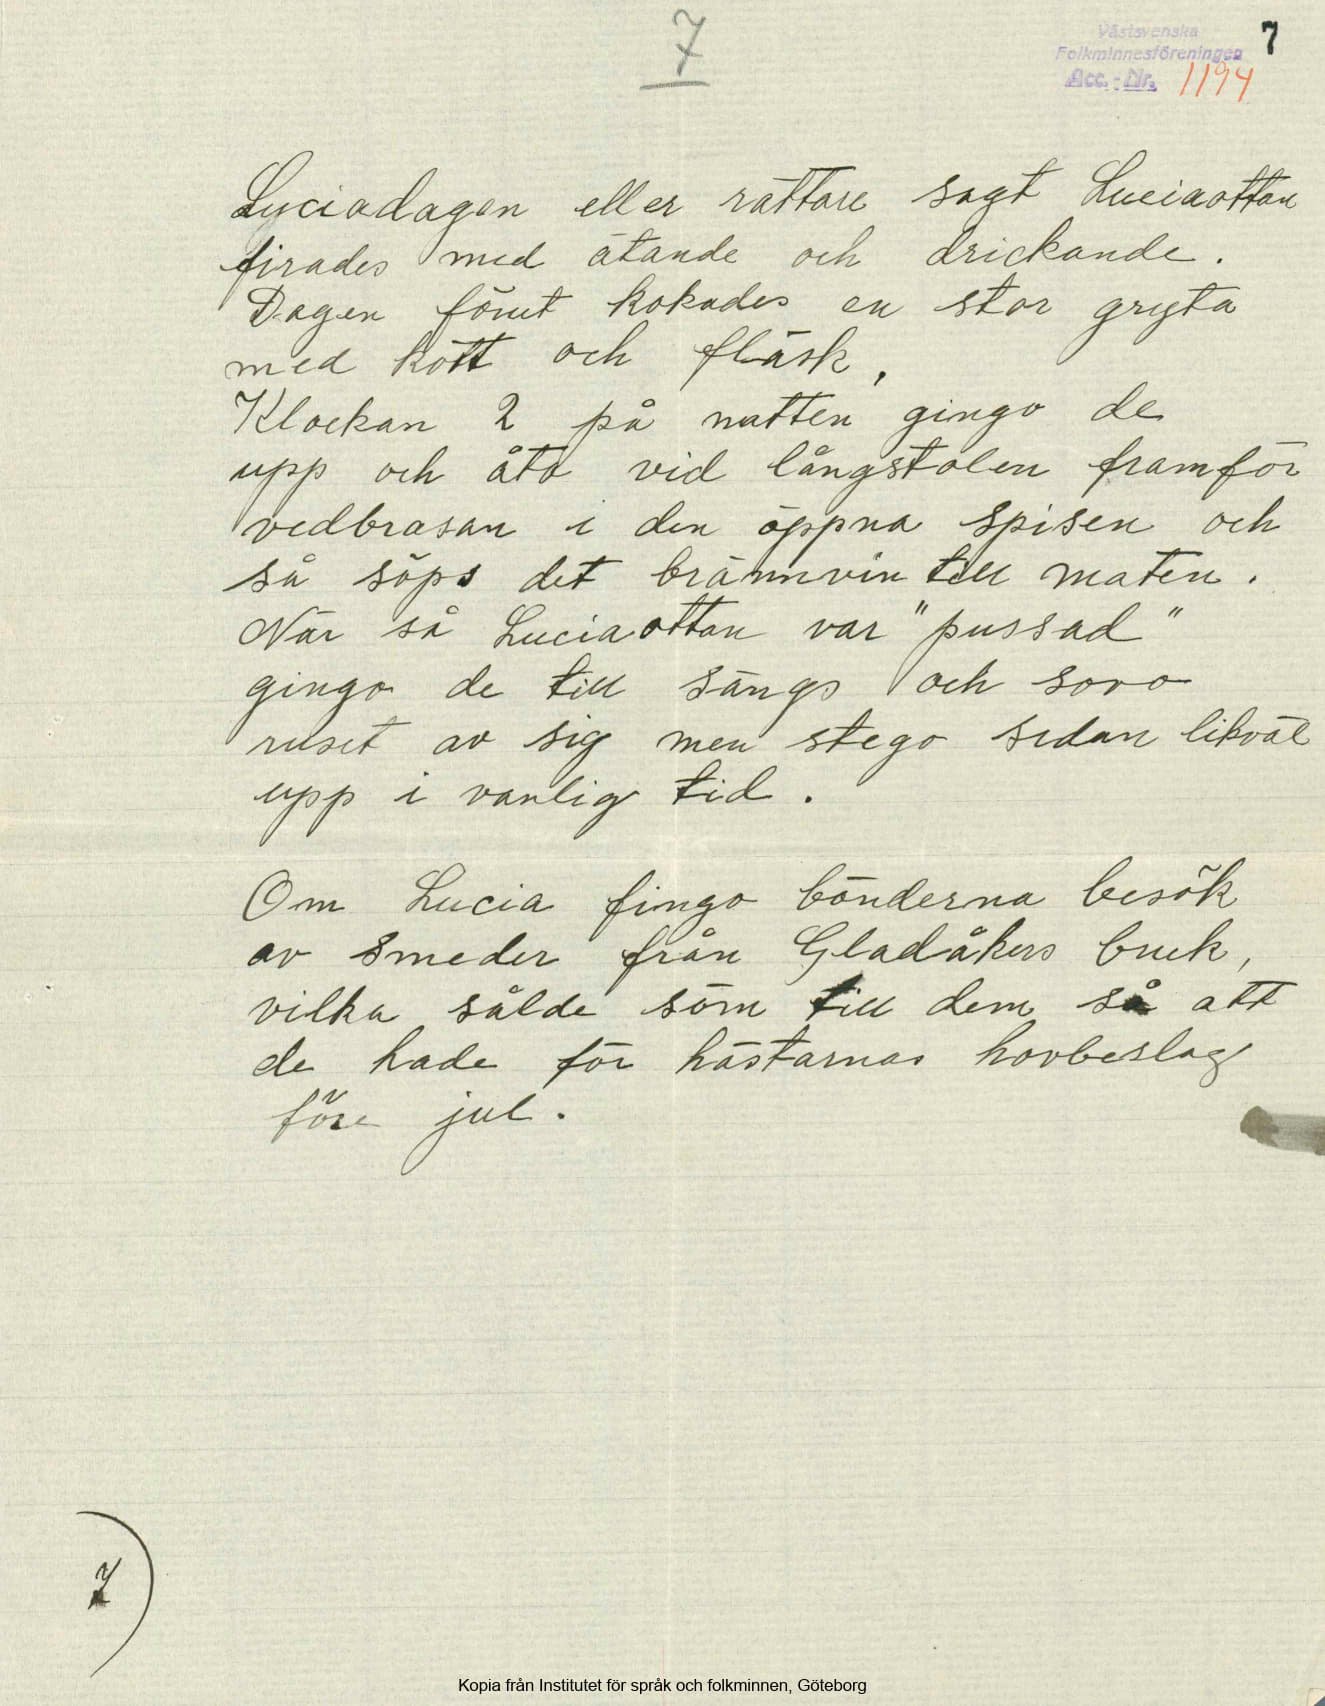 7
Västsvenska
Folkminnesföreningen
Acc. - Nr. 1194
7
Lyciadagen eller rättare sagt Luciaottan
firades med ätande och drickande.
Dagen förut kokades en stor gryta
med kött och fläsk.
Klockan 2 på natten gingo de
upp och åto vid långstolen framför
vedbrasan i den öppna spisen och
så söps det brännvin till maten.
När så Luciaottan var "pussad"
gingo de till sängs och sovo
ruset av sig men stego sedan likväl
upp i vanlig tid.
Om Lucia fingo bönderna besök
av smeder från Gladåkers bruk,
vilka sålde söm till dem så att
de hade för hästarnas hovbeslag
före jul.
7
Kopia från Institutet för språk och folkminnen, Göteborg